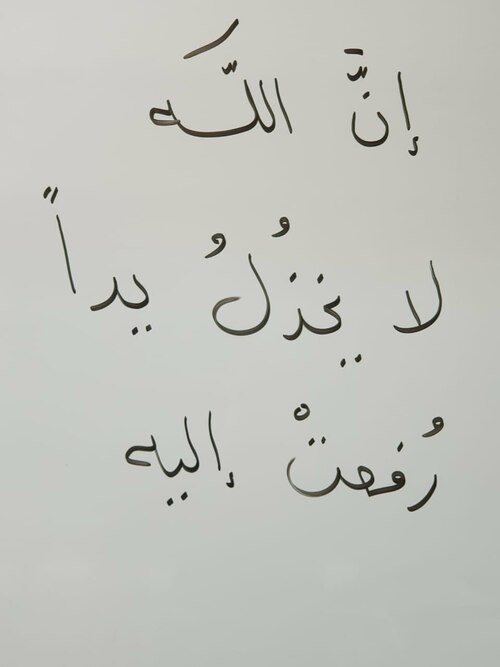 إنَّ اللَّه
لا يخذُلُ يداً
رُفعتْ إليه